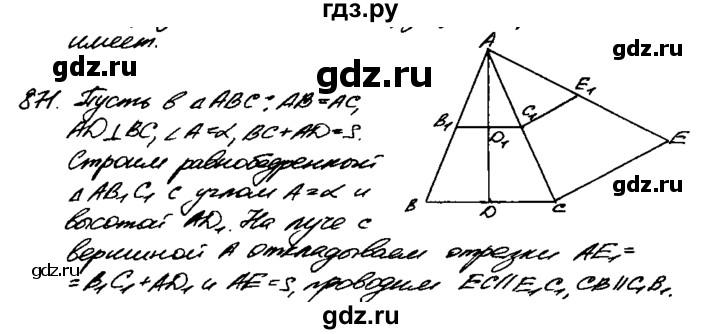 гдз.ру
имеет.
gdz.ru
gdz.ru
871. Пусть в △ABC: AB=AC,
AD⊥BC, ∠A=α, BC+AD=S.
gdz.ru
Строим равнобедренный
△AB₁C₁ с углом A=α и
gdz.ru
высотой AD₁. На луче с
вершиной A откладываем отрезки AE₁=
=B₁C₁+AD₁ и AE=S, проводим EC∥E₁C₁, CB∥C₁B₁.
gdz.ru
gdz.ru
A
E₁
B₁
C₁
D₁
E
B
D
C
gdz.ru